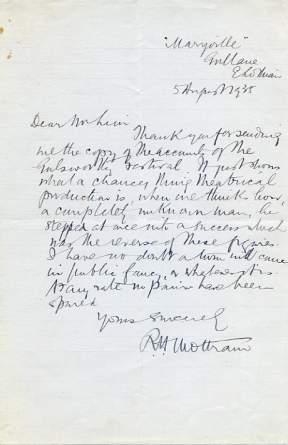 "Maryville"
Gullane
E Lothian
5 August 1935
Dear Mr Linn
Thank you for sending
me the copy of the accounts of the
Galsworthy Festival. It just shows
what a chancey thing theatrical
production is when one thinks how,
a completely unknown man, he
stepped at once into a success which
was the reverse of these figures.
I have no doubt a turn will come
in public fancy, or whatever it is.
At any rate no pains have been
spared
Yours sincerely
R H Mottram